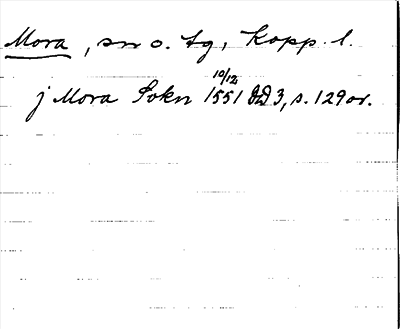 Mora, sn o. tg, Kopp. l.
10/12
j Mora Sokn 1551 DD 3, s. 129 or.